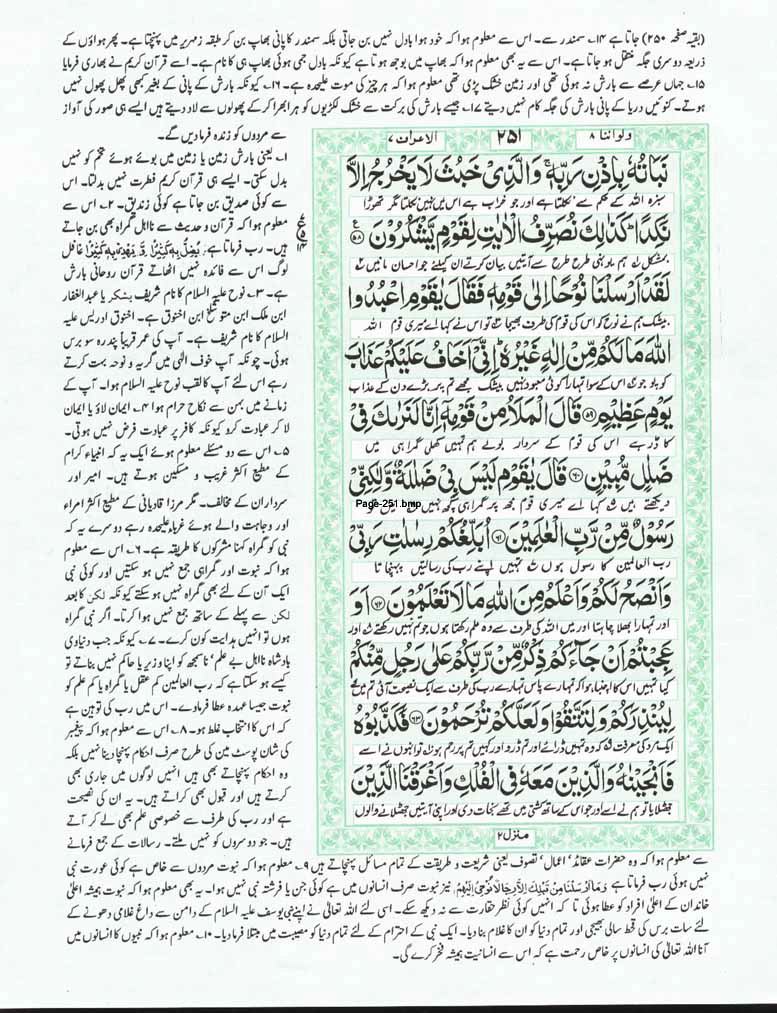 (بقیہ صفحہ ۲۵۰) جاتا ہے ۱۴۔ سمندر سے۔ اس سے معلوم ہوا کہ خود ہوا بادل نہیں بن جاتی بلکہ سمندر کا پانی بھاپ بن کر طبقہ زمہریر میں پہنچتا ہے۔ پھر ہواؤں کے
ذریعہ دوسری جگہ منتقل ہو جاتا ہے۔ اس سے یہ بھی معلوم ہوا کہ بھاپ میں بوجھ ہوتا ہے کیونکہ بادل جمی ہوئی بھاپ ہی کا نام ہے۔ اسے قرآن کریم نے بھاری فرمایا
۱۵۔ جہاں عرصے سے بارش نہ ہوئی تھی اور زمین خشک پڑی تھی معلوم ہوا کہ ہر چیز کی موت علیحدہ ہے۔ ۱۶۔ کیونکہ بارش کے پانی کے بغیر کبھی پھل پھول نہیں
ہوتے۔ کنوئیں دریا کے پانی بارش کی جگہ کام نہیں دیتے ۱۷۔ جیسے بارش کی برکت سے خشک لکڑیوں کو ہرا بھرا کر کے پھولوں سے لاد دیتے ہیں ایسے ہی صور کی آواز
سے مردوں کو زندہ فرما دیں گے۔
ولو اننا ۸
۲۵۱
الاعراف ۷
نَبَاتُهٗ بِاِذْنِ رَبِّهٖ ۚ وَالَّذِیْ خَبُثَ لَا یَخْرُجُ اِلَّا
سبزہ اللہ کے حکم سے نکلتا ہے اور جو خراب ہے اس میں نہیں نکلتا مگر تھوڑا
نَكِدًا ؕ كَذٰلِكَ نُصَرِّفُ الْاٰیٰتِ لِقَوْمٍ یَّشْكُرُوْنَ ﴿۵۸﴾
بمشکل ہم یونہی طرح طرح سے آیتیں بیان کرتے ان کیلئے جو احسان مانیں
لَقَدْ اَرْسَلْنَا نُوْحًا اِلٰی قَوْمِهٖ فَقَالَ یٰقَوْمِ اعْبُدُوا
بیشک ہم نے نوح کو اس کی قوم کی طرف بھیجا تو اس نے کہا اے میری قوم اللہ
اللّٰهَ مَا لَكُمْ مِّنْ اِلٰهٍ غَیْرُهٗ ؕ اِنِّیْۤ اَخَافُ عَلَیْكُمْ عَذَابَ
کو پوجو اس کے سوا تمہارا کوئی معبود نہیں بیشک مجھے تم پر بڑے دن کے عذاب
یَوْمٍ عَظِیْمٍ ﴿۵۹﴾ قَالَ الْمَلَاُ مِنْ قَوْمِهٖۤ اِنَّا لَنَرٰىكَ فِیْ
کا ڈر ہے اس کی قوم کے سردار بولے ہم تمہیں کھلی گمراہی میں
ضَلٰلٍ مُّبِیْنٍ ﴿۶۰﴾ قَالَ یٰقَوْمِ لَیْسَ بِیْ ضَلٰلَةٌ وَّلٰكِنِّیْ
دیکھتے ہیں کہا اے میری قوم مجھ میں گمراہی کچھ نہیں میں
Page-251.bmp
رَسُوْلٌ مِّنْ رَّبِّ الْعٰلَمِیْنَ ﴿۶۱﴾ اُبَلِّغُكُمْ رِسٰلٰتِ رَبِّیْ
رب العالمین کا رسول ہوں تمہیں اپنے رب کی رسالتیں پہنچاتا
وَاَنْصَحُ لَكُمْ وَاَعْلَمُ مِنَ اللّٰهِ مَا لَا تَعْلَمُوْنَ ﴿۶۲﴾ اَوَ
اور تمہارا بھلا چاہتا اور میں اللہ کی طرف سے وہ علم رکھتا ہوں جو تم نہیں رکھتے اور
عَجِبْتُمْ اَنْ جَآءَكُمْ ذِكْرٌ مِّنْ رَّبِّكُمْ عَلٰی رَجُلٍ مِّنْكُمْ
کیا تمہیں اس کا اچنبا ہوا کہ تمہارے پاس تمہارے رب کی طرف سے ایک نصیحت آئی تم میں کے
لِیُنْذِرَكُمْ وَلِتَتَّقُوْا وَلَعَلَّكُمْ تُرْحَمُوْنَ ﴿۶۳﴾ فَكَذَّبُوْهُ
ایک مرد کی معرفت کہ وہ تمہیں ڈرائے اور تم ڈرو اور کہیں تم پر رحم ہو تو انہوں نے اسے
فَاَنْجَیْنٰهُ وَالَّذِیْنَ مَعَهٗ فِی الْفُلْكِ وَاَغْرَقْنَا الَّذِیْنَ
جھٹلایا تو ہم نے اسے اور جو اس کے ساتھ کشتی میں تھے نجات دی اور اپنی آیتیں جھٹلانے والوں
منزل ۲
ع
۱۴
۱۔ یعنی بارش زمین یا زمین میں بوئے ہوئے تخم کو نہیں
بدل سکتی۔ ایسے ہی قرآن کریم فطرت نہیں بدلتا۔ اس
سے کوئی صدیق بن جاتا ہے کوئی زندیق۔ ۲۔ اس سے
معلوم ہوا کہ قرآن و حدیث سے نااہل گمراہ بھی بن جاتے
ہیں۔ رب فرماتا ہے، یُضِلُّ بِهٖ كَثِیْرًا وَّ یَهْدِیْ بِهٖ كَثِیْرًا غافل
لوگ اس سے فائدہ نہیں اٹھاتے قرآن روحانی بارش
ہے۔ ۳۔ نوح علیہ السلام کا نام شریف یشکر یا عبدالغفار
ابن ملک ابن متوشلخ ابن اخنوق ہے۔ اخنوق ادریس علیہ
السلام کا نام شریف ہے۔ آپ کی عمر قریباً پندرہ سو برس
ہوئی۔ چونکہ آپ خوف الٰہی میں گریہ و نوحہ بہت کرتے
رہے اس لئے آپ کا لقب نوح علیہ السلام ہوا۔ آپ کے
زمانے میں بہن سے نکاح حرام ہوا ۴۔ ایمان لاؤ یا ایمان
لا کر عبادت کرو کیونکہ کافر پر عبادت فرض نہیں ہوتی۔
۵۔ اس سے دو مسئلے معلوم ہوئے ایک یہ کہ انبیاء کرام
کے مطیع اکثر غریب و مسکین ہوتے ہیں۔ امیر اور
سرداران کے مخالف۔ مگر مرزا قادیانی کے مطیع اکثر امراء
اور وجاہت والے ہوئے غرباء علیحدہ رہے دوسرے یہ کہ
نبی کو گمراہ کہنا مشرکوں کا طریقہ ہے۔ ۶۔ اس سے معلوم
ہوا کہ نبوت اور گمراہی جمع نہیں ہو سکتیں اور کوئی نبی
ایک آن کے لئے بھی گمراہ نہیں ہو سکتے کیونکہ لکن کا بعد
لکن سے پہلے کے ساتھ جمع نہیں ہوا کرتا۔ اگر نبی گمراہ
ہوں تو انہیں ہدایت کون کرے۔ ۷۔ کیونکہ جب دنیاوی
بادشاہ نااہل بے علم' ناسمجھ کو اپنا وزیر یا حاکم نہیں بناتے تو
کیسے ہو سکتا ہے کہ رب العالمین کم عقل یا گمراہ یا کم علم کو
نبوت جیسا عہدہ عطا فرماوے۔ اس میں رب کی توہین ہے
کہ اس کا انتخاب غلط ہو۔ ۸۔ اس سے معلوم ہوا کہ پیغمبر
کی شان پوسٹ مین کی طرح صرف احکام پہنچا دینا نہیں بلکہ
وہ احکام پہنچاتے بھی ہیں انہیں لوگوں میں جاری بھی
کرتے ہیں اور قبول بھی کراتے ہیں۔ یہ ان کی نصیحت
ہے اور رب کی طرف سے خصوصی علم بھی لے کر آتے
ہیں۔ جو دوسروں کو نہیں ملتے۔ رسالات کے جمع فرمانے
سے معلوم ہوا کہ وہ حضرات عقائد' اعمال' تصوف یعنی شریعت و طریقت کے تمام مسائل پہنچاتے ہیں ۹۔ معلوم ہوا کہ نبوت مردوں سے خاص ہے کوئی عورت نبی
نہیں ہوئی رب فرماتا ہے وَمَاۤ اَرْسَلْنَا مِنْ قَبْلِكَ اِلَّا رِجَالًا نُّوْحِیْۤ اِلَیْهِمْ نیز نبوت صرف انسانوں میں ہے کوئی جن یا فرشتہ نبی نہیں ہوا۔ یہ بھی معلوم ہوا کہ نبوت ہمیشہ اعلیٰ
خاندان کے اعلیٰ افراد کو عطا ہوئی تا کہ انہیں کوئی نظر حقارت سے نہ دیکھ سکے۔ اسی لئے اللہ تعالیٰ نے اپنے نبی یوسف علیہ السلام کے دامن سے داغ غلامی دھونے کے
لئے سات برس کی قحط سالی بھیجی اور تمام دنیا کو ان کا غلام بنا دیا۔ ایک نبی کے احترام کے لئے تمام دنیا کو مصیبت میں مبتلا فرما دیا۔ ۱۰۔ معلوم ہوا کہ نبیوں کا انسانوں میں
آنا اللہ تعالیٰ کی انسانوں پر خاص رحمت ہے کہ اس سے انسانیت ہمیشہ فخر کرے گی۔